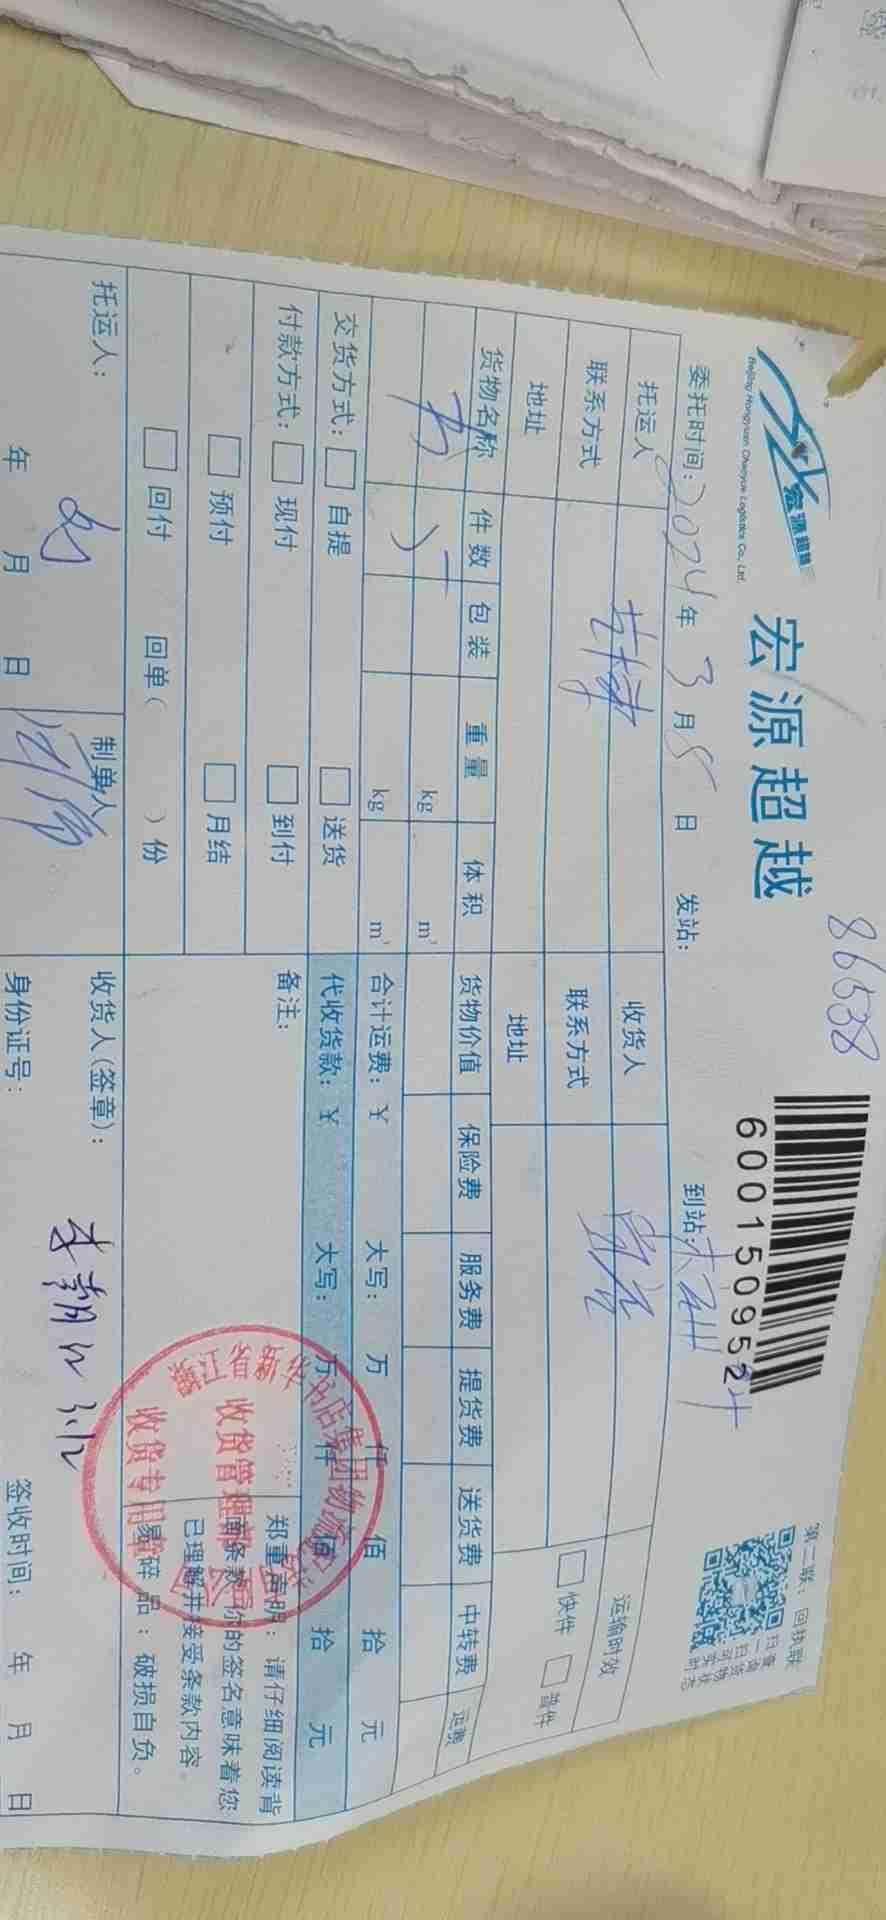 宏源超越
Beijing Hongyuan Chaoyue Logistics Co., Ltd.
宏源超越
86538
6001509524
第二联：回执联
扫一扫
查询货物
实时状态
委托时间：2024年3月8日 发站： 到站：
托运人 收货人 运输时效
联系方式 联系方式 快件 普件
地址 地址
货物名称 件数 包装 重量 体积 货物价值 保险费 服务费 提货费 送货费 中转费 运费
书 kg m³
kg m³ 合计运费：¥ 大写： 万 仟 佰 拾 元
交货方式： 自提 送货 代收货款：¥ 大写： 万 仟 佰 拾 元
付款方式： 现付 到付 备注：
预付 月结
回付 回单（ ）份
郑重声明：请仔细阅读背
面条款，你的签名意味着您
已理解并接受条款内容。
易碎品：破损自负。
浙江省新华书店集团物流
收货管理部
收货专用章
托运人： 制单人 收货人(签章)：
年 月 日 身份证号： 签收时间： 年 月 日